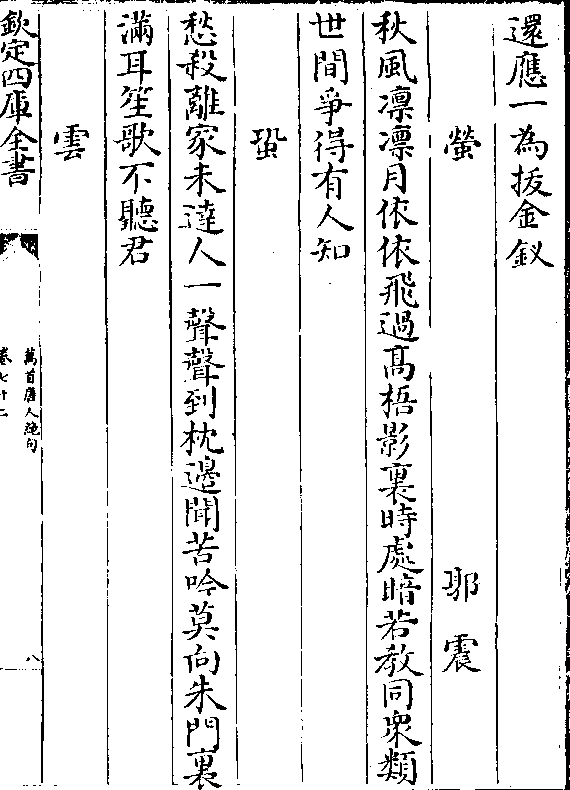 還應一為拔金釵
螢 郭震
秋風凛凛月依依飛過髙梧影裏時處暗若教同衆類
世間爭得有人知
蛩
愁殺離家未達人一聲聲到枕邊聞苦吟莫向朱門裏
滿耳笙歌不聽君
雲
欽定四庫全書
萬首唐人絶句
卷七十二
八